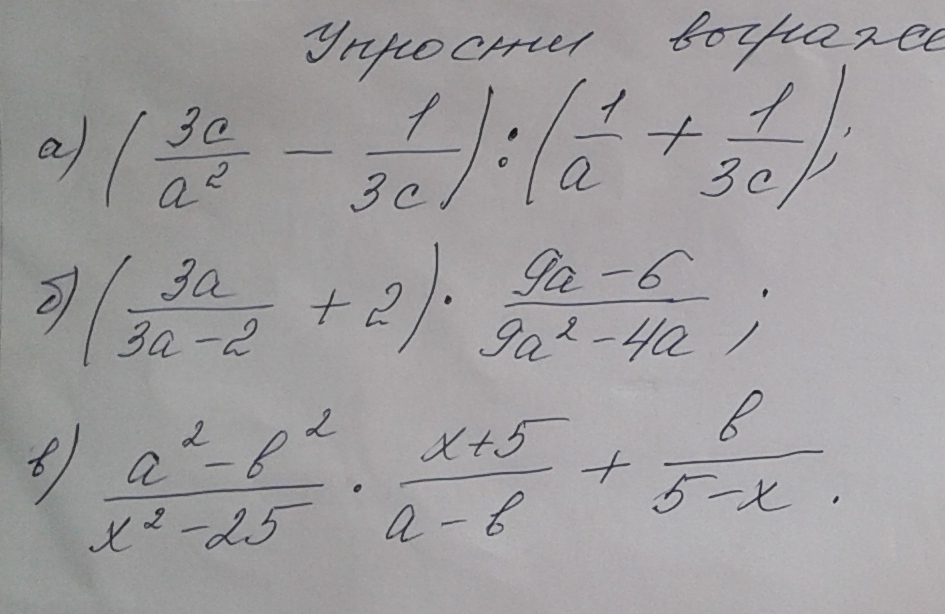 Упрости выраже
а) (3c/a² − 1/3c) : (1/a + 1/3c);
б) (3a/3a−2 + 2) · 9a−6/9a²−4a ;
в) a²−b²/x²−25 · x+5/a−b + b/5−x .